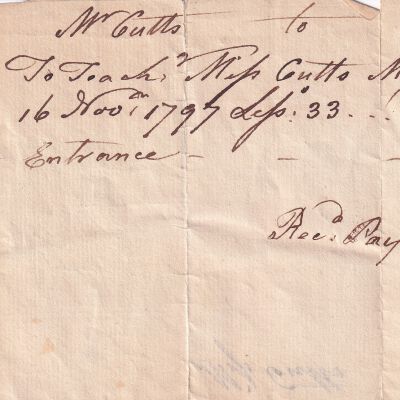 Mr Cutts to
To Teachg Miss Cutts M
16 Novem 1797 Lesso: 33 ...
Entrance - -
Recd. Pay